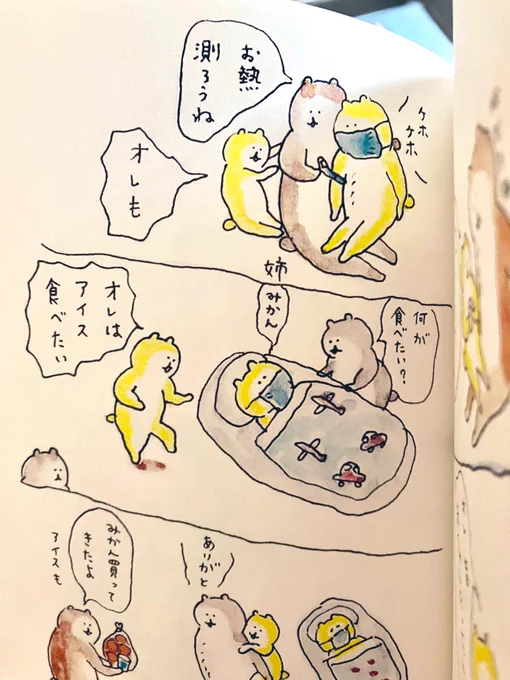 お熱
測ろうね
ケホ
ケホ
オレも
姉
何が
食べたい?
みかん
オレは
アイス
食べたい
ありがと
みかん買って
きたよ
アイスも